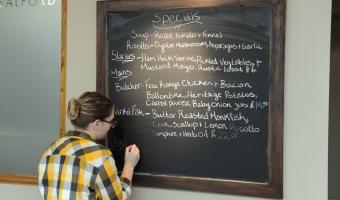 SALFORD
Specials
Soup - Roast tomato + Fennel
Risotto - Oyster Mushroom, Asparagus + Garlic
Starters - Ham Hock Terrine, Pickled Vegetables +
Mustard Mayo, Rustic toast
Mains
Butcher - Free Range Chicken + Bacon
Ballontine, Heritage Potatoes,
Carrot puree, Baby Onion jus £14.50
Fish - Butter Roasted Monkfish,
Leek, Scallop + Lemon Risotto
Samphire + Herb Oil £22.00